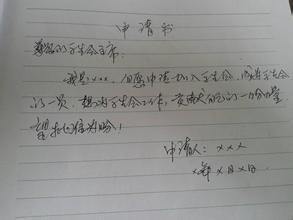 申请书
尊敬的学生会主席:
我是xxx,自愿申请加入学生会,成为学生会
的一员,想为学生会工作,贡献自己的一份力量,
望批准为盼!
申请人:xxx
x年x月x日